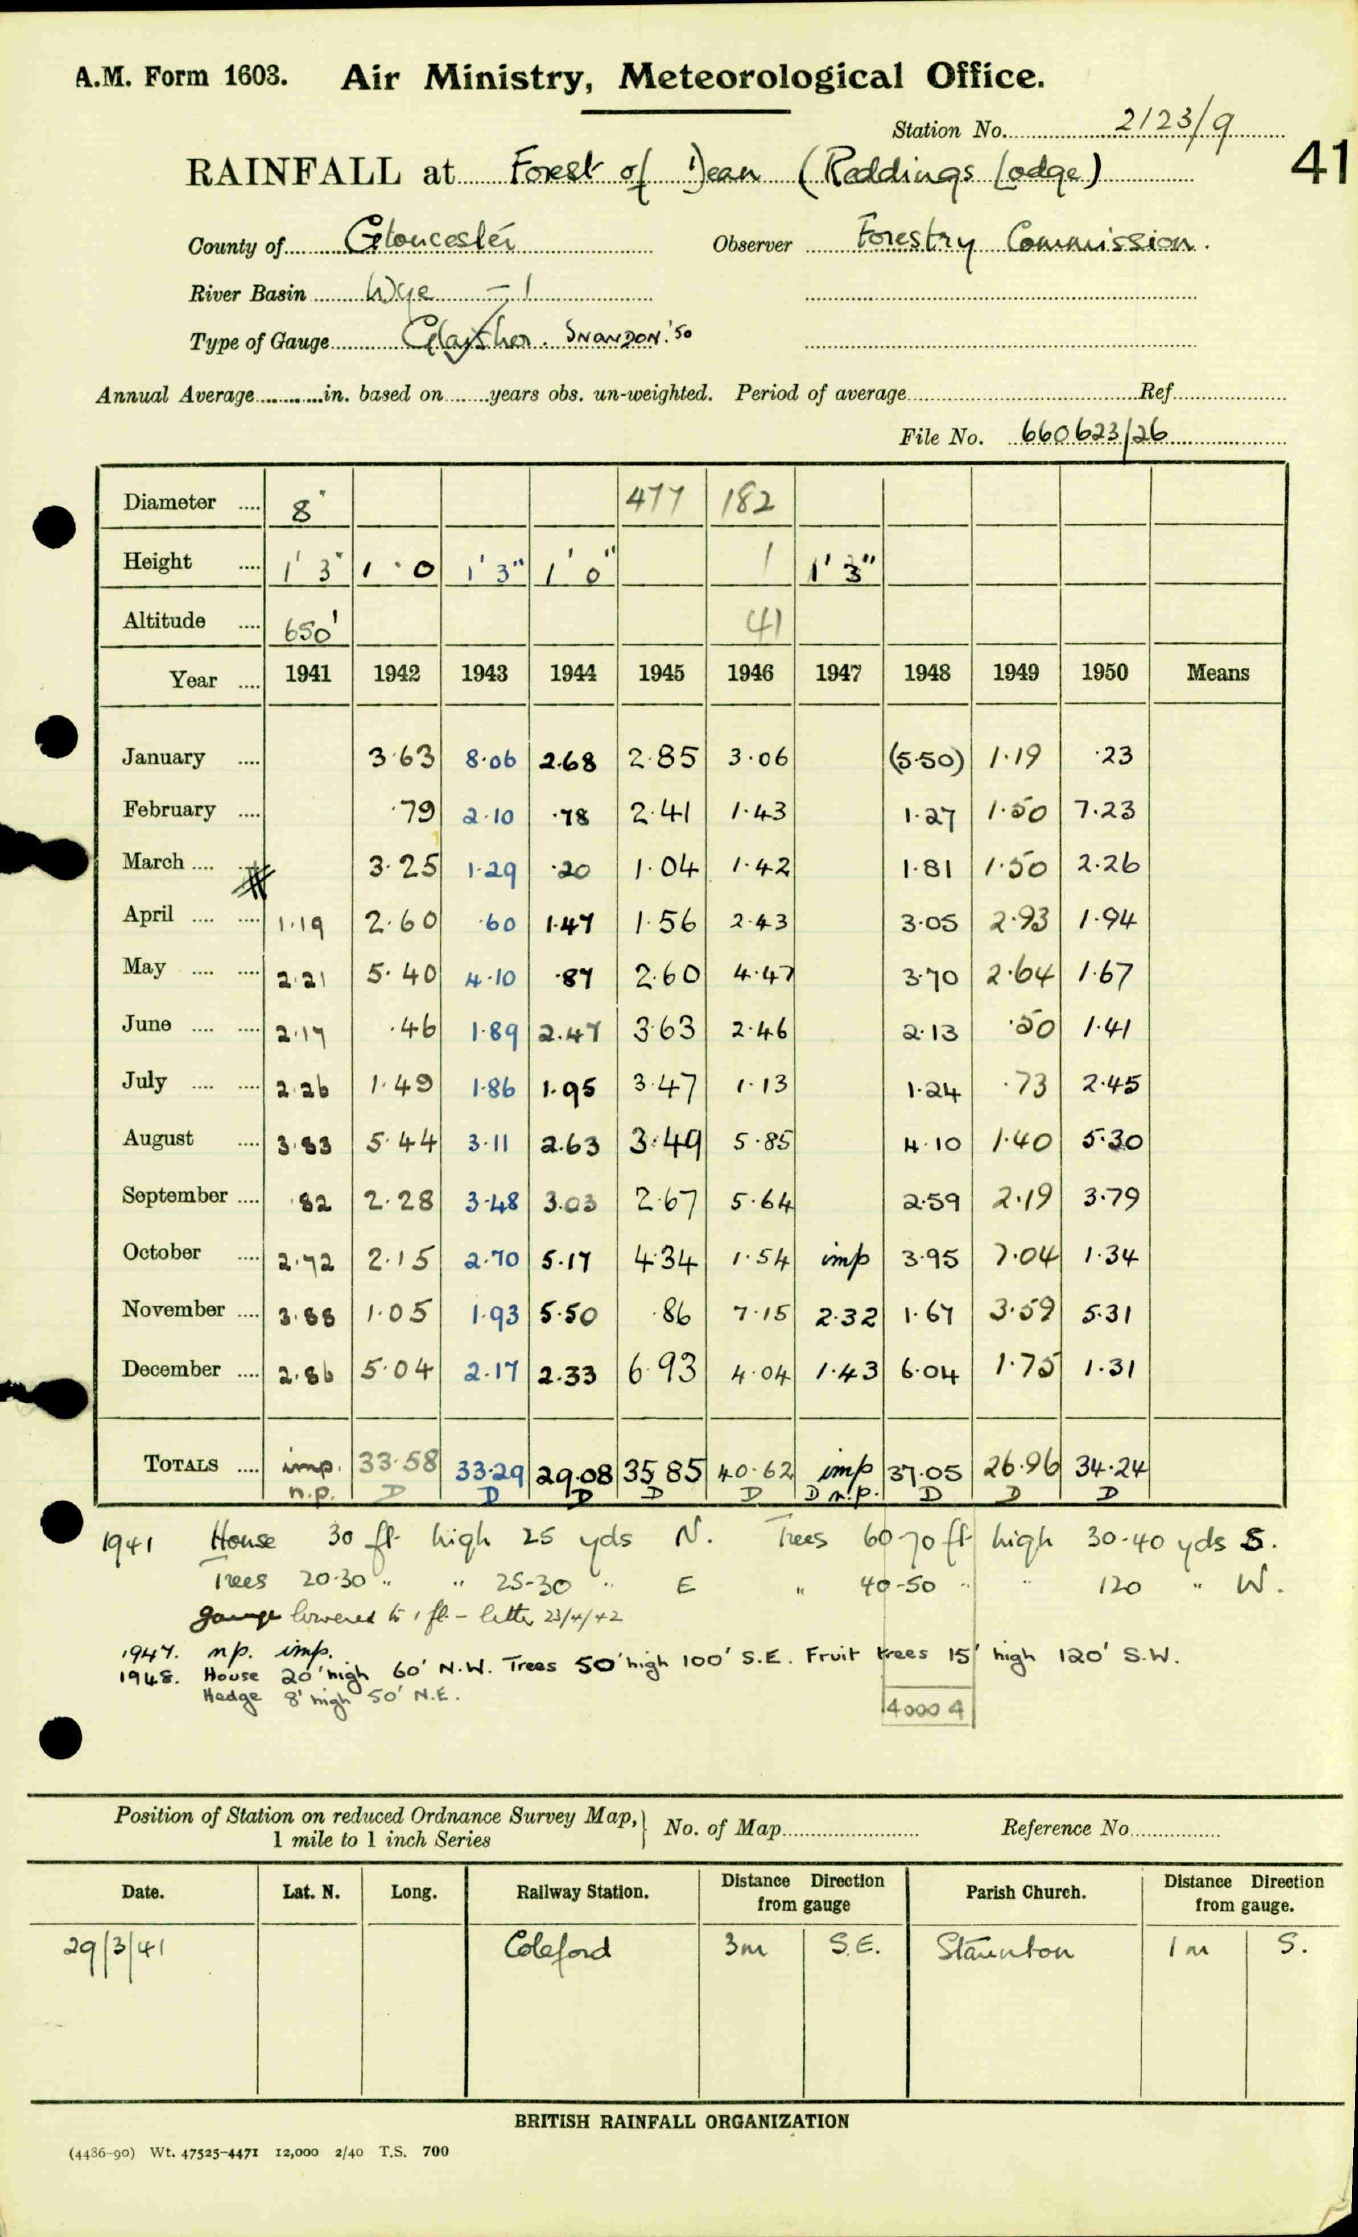 A.M. Form 1603. Air Ministry, Meteorological Office.
Station No. 2123/9
41
RAINFALL at Forest of Dean (Reddings Lodge)
County of Gloucester Observer Forestry Commission.
River Basin Wye - 1
Type of Gauge Glaisher. SNOWDON. '50
Annual Average in. based on years obs. un-weighted. Period of average Ref
File No. 660623/26
Diameter 8" 477 182
Height 1' 3" 1 . 0 1' 3" 1' 0" 1 1' 3"
Altitude 650' 41
Year 1941 1942 1943 1944 1945 1946 1947 1948 1949 1950 Means
January 3.63 8.06 2.68 2.85 3.06 (5.50) 1.19 .23
February .79 2.10 .78 2.41 1.43 1.27 1.50 7.23
March 3.25 1.29 .20 1.04 1.42 1.81 1.50 2.26
April 1.19 2.60 .60 1.47 1.56 2.43 3.05 2.93 1.94
May 2.21 5.40 4.10 .87 2.60 4.47 3.70 2.64 1.67
June 2.17 .46 1.89 2.47 3.63 2.46 2.13 .50 1.41
July 2.26 1.49 1.86 1.95 3.47 1.13 1.24 .73 2.45
August 3.83 5.44 3.11 2.63 3.49 5.85 4.10 1.40 5.30
September .82 2.28 3.48 3.03 2.67 5.64 2.59 2.19 3.79
October 2.72 2.15 2.70 5.17 4.34 1.54 imp 3.95 7.04 1.34
November 3.88 1.05 1.93 5.50 .86 7.15 2.32 1.67 3.59 5.31
December 2.86 5.04 2.17 2.33 6.93 4.04 1.43 6.04 1.75 1.31
TOTALS imp. 33.58 33.29 29.08 35.85 40.62 imp 37.05 26.96 34.24
n.p. D D D D D D n.p. D D D
1941 House 30 ft high 25 yds N. Trees 60-70 ft high 30-40 yds S.
Trees 20-30 " " 25-30 " E " 40-50 " " 120 " W.
gauge lowered to 1 ft - letter 23/4/42
1947. np. imp.
1948. House 20' high 60' N.W. Trees 50' high 100' S.E. Fruit trees 15' high 120' S.W.
Hedge 8' high 50' N.E.
40004
Position of Station on reduced Ordnance Survey Map, 1 mile to 1 inch Series No. of Map Reference No
Date. Lat. N. Long. Railway Station. Distance Direction from gauge Parish Church. Distance Direction from gauge.
29/3/41 Coleford 3m S.E. Staunton 1m S.
BRITISH RAINFALL ORGANIZATION
(4486-90) Wt. 47525-4471 12,000 2/40 T.S. 700